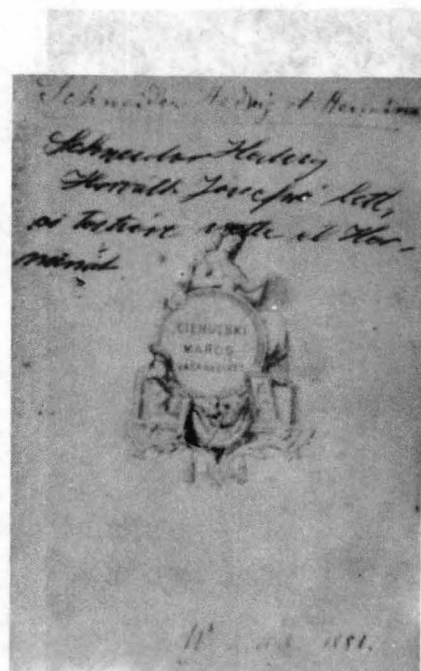 Schneider Hedwig et Hermina
Schneider Hedvig
Horváth Józsefné lett,
a vette el Her-
minát
CIEHULSKI
MAROS
VÁSÁRHELYTT
1881.